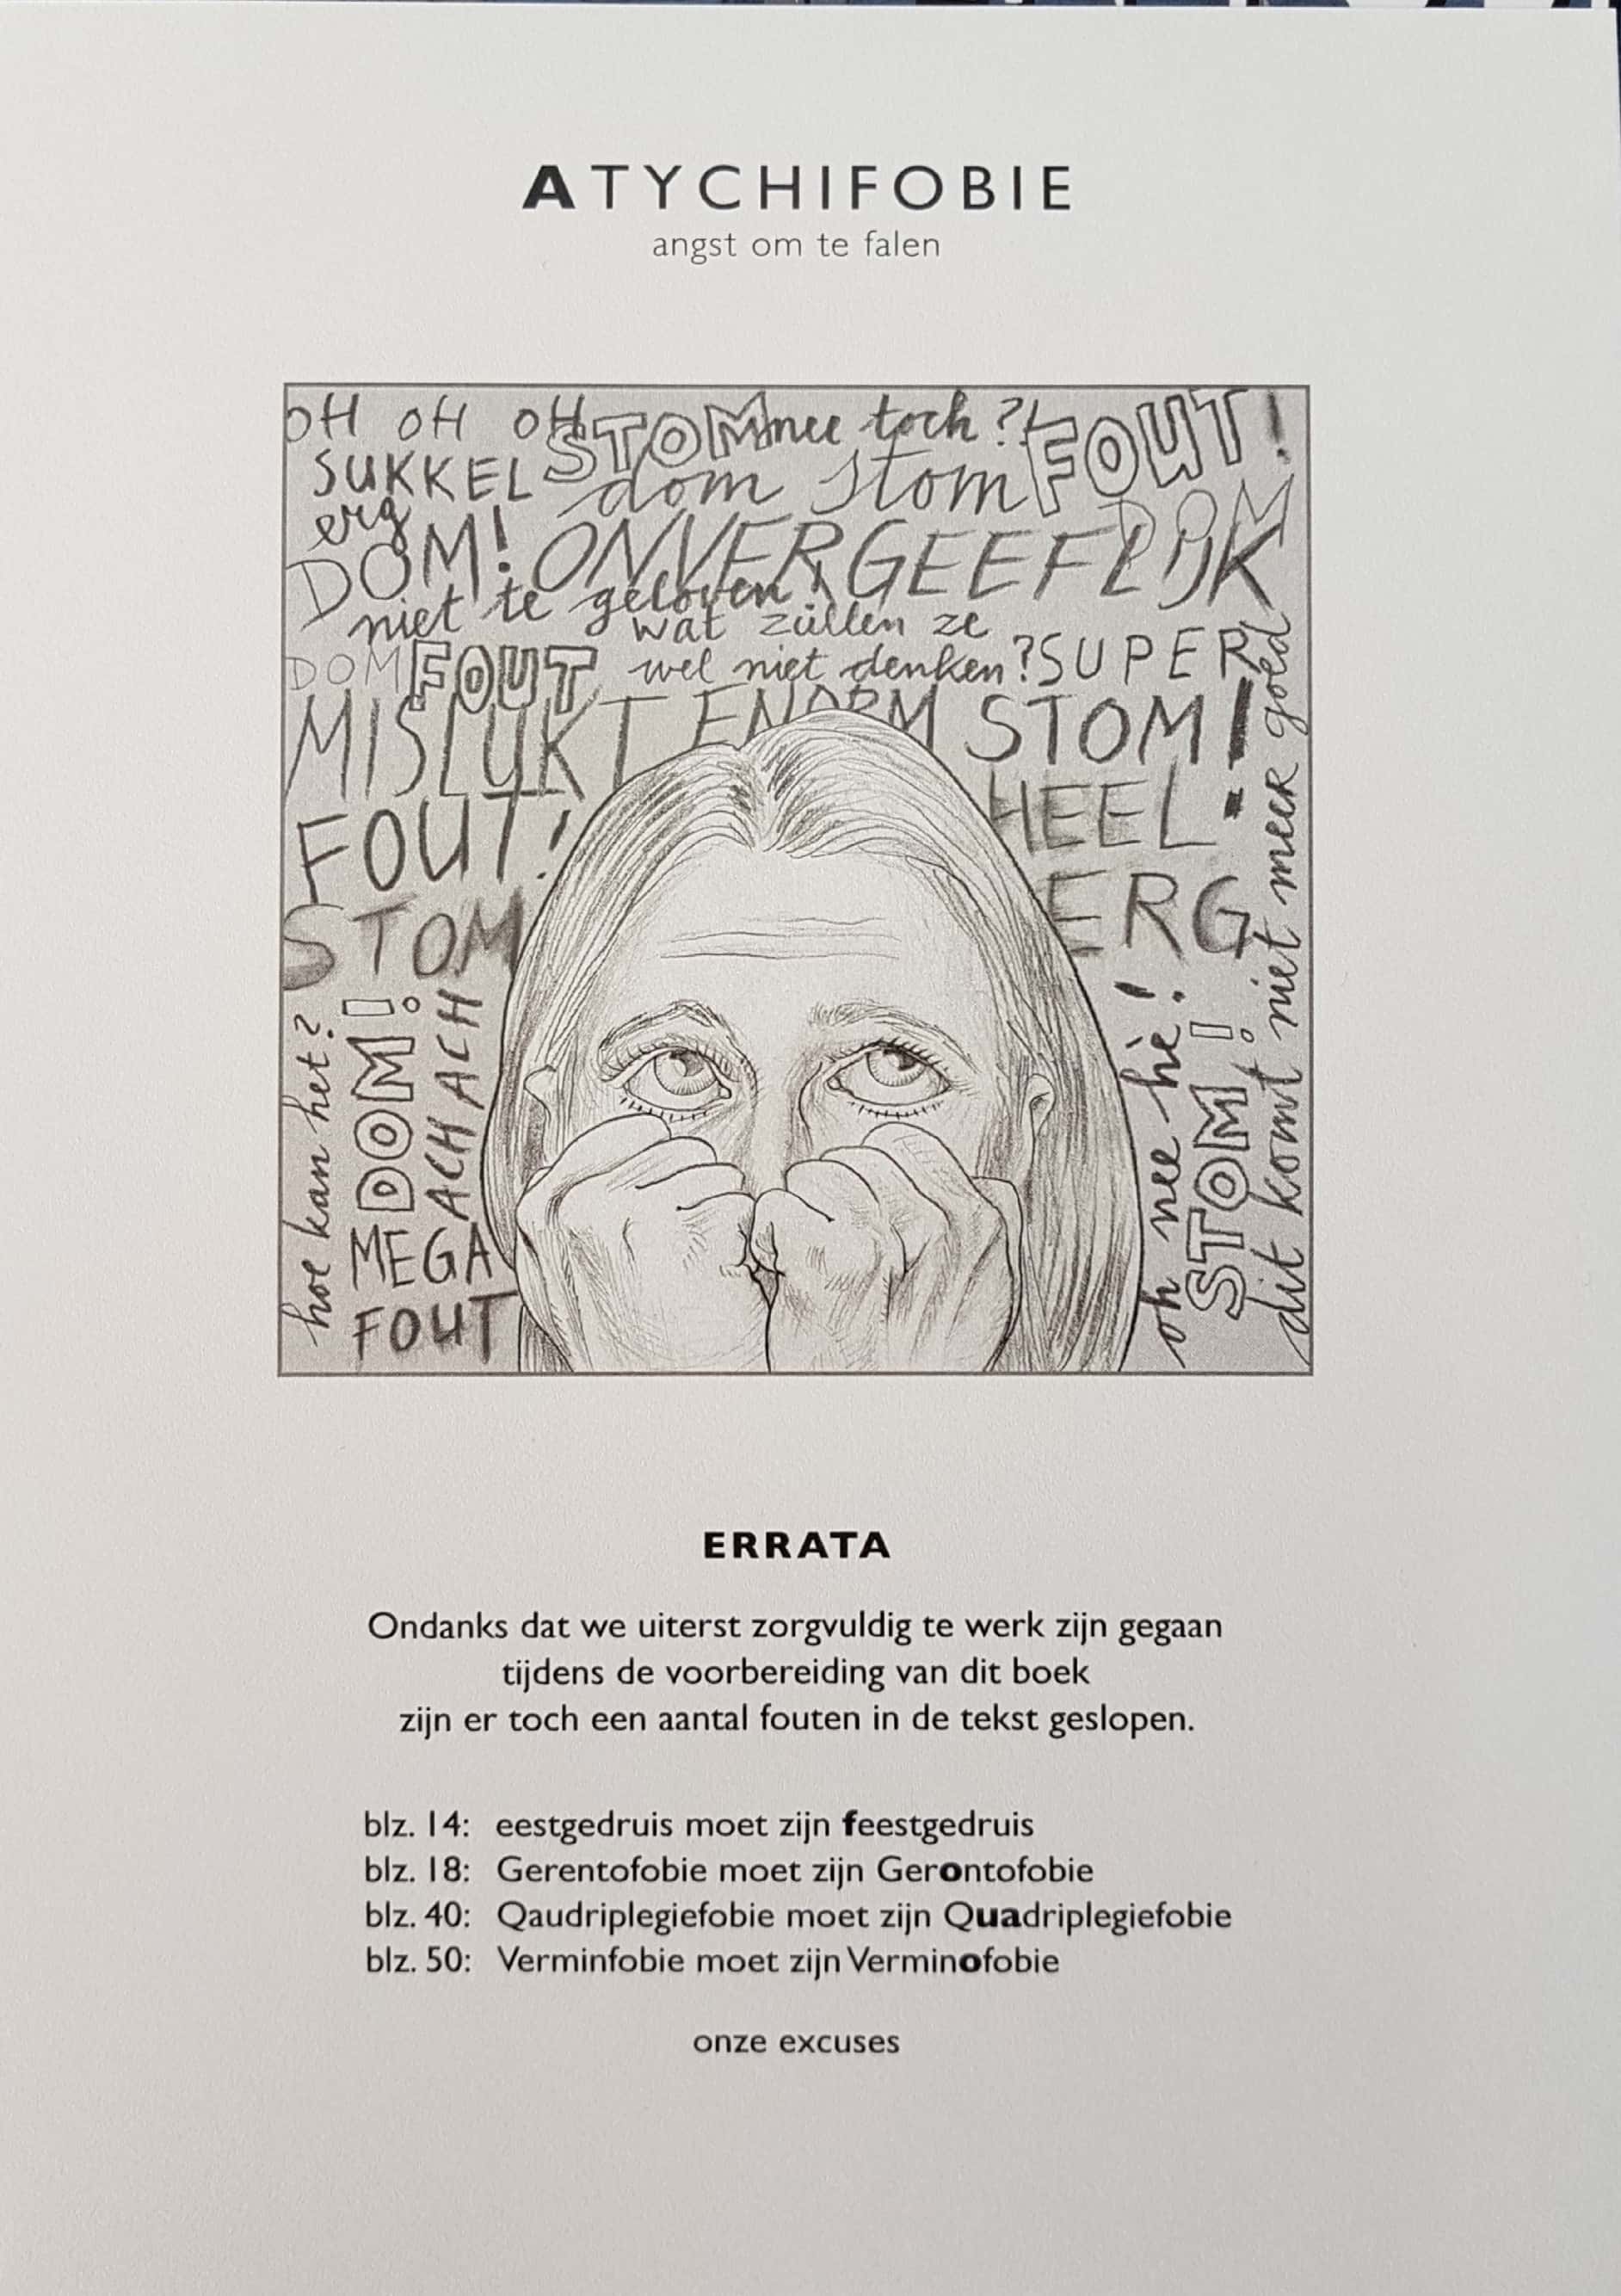 ATYCHIFOBIE
angst om te falen
OH OH OH STOM nee toch?! FOUT!
SUKKEL dom stom
erg DOM
DOM! ONVERGEEFLIJK
niet te geloven!
wat zullen ze
DOM FOUT wel niet denken? SUPER
MISLUKT ENORM STOM!
FOUT! HEEL
STOM ERG
hoe kan het?
DOM!
ACH ACH
MEGA
FOUT
oh nee hè!
STOM!
dit komt niet meer goed
ERRATA
Ondanks dat we uiterst zorgvuldig te werk zijn gegaan
tijdens de voorbereiding van dit boek
zijn er toch een aantal fouten in de tekst geslopen.
blz. 14: eestgedruis moet zijn feestgedruis
blz. 18: Gerentofobie moet zijn Gerontofobie
blz. 40: Qaudriplegiefobie moet zijn Quadriplegiefobie
blz. 50: Verminfobie moet zijn Verminofobie
onze excuses